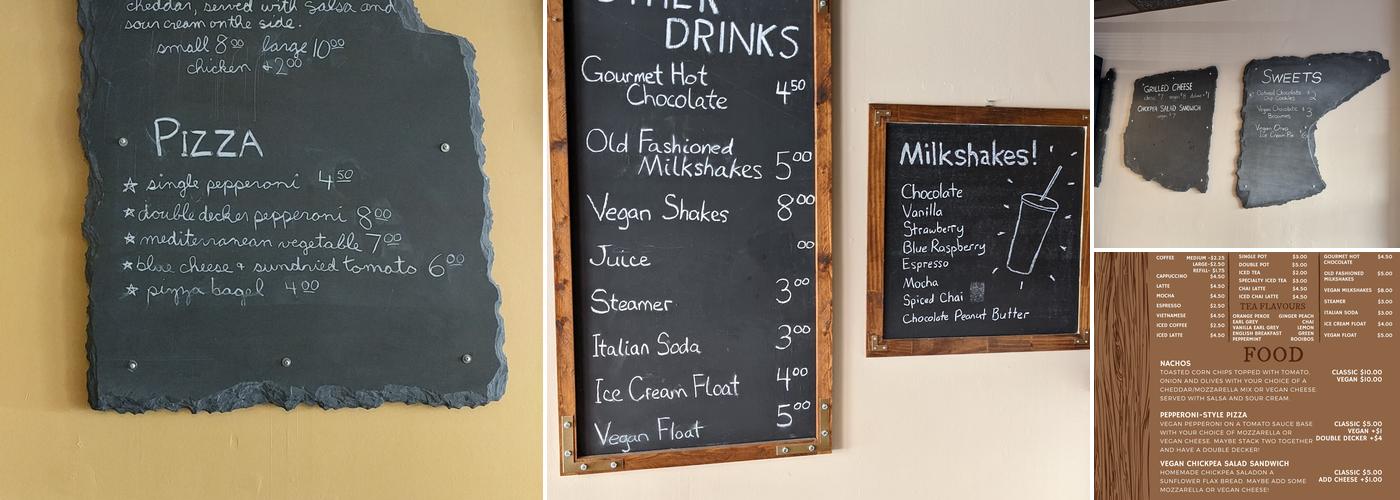 cheddar, served with salsa and
sour cream on the side.
small 8⁰⁰ large 10⁰⁰
chicken +2⁰⁰
PIZZA
☆ single pepperoni 4⁵⁰
☆ double decker pepperoni 8⁰⁰
☆ mediterranean vegetable 7⁰⁰
☆ blue cheese + sundried tomato 6⁰⁰
☆ pizza bagel 4⁰⁰
OTHER
DRINKS
Gourmet Hot
Chocolate 4⁵⁰
Old Fashioned
Milkshakes 5⁰⁰
Vegan Shakes 8⁰⁰
Juice ⁰⁰
Steamer 3⁰⁰
Italian Soda 3⁰⁰
Ice Cream Float 4⁰⁰
Vegan Float 5⁰⁰
Milkshakes!
Chocolate
Vanilla
Strawberry
Blue Raspberry
Espresso
Mocha
Spiced Chai
Chocolate Peanut Butter
GRILLED CHEESE
CHICKPEA SALAD SANDWICH
SWEETS
Oatmeal Chocolate
Chip Cookies 2
Vegan Chocolate
Brownies 3
Vegan Oreo
Ice Cream Pie
COFFEE MEDIUM -$2.25
LARGE-$2.50
REFILL- $1.75
CAPPUCCINO $4.50
LATTE $4.50
MOCHA $4.50
ESPRESSO $2.50
VIETNAMESE $4.50
ICED COFFEE $2.50
ICED LATTE $4.50
SINGLE POT $3.00
DOUBLE POT $5.00
ICED TEA $2.00
SPECIALTY ICED TEA $3.00
CHAI LATTE $4.50
ICED CHAI LATTE $4.50
TEA FLAVOURS
ORANGE PEKOE GINGER PEACH
EARL GREY CHAI
VANILLA EARL GREY LEMON
ENGLISH BREAKFAST GREEN
PEPPERMINT ROOIBOS
GOURMET HOT $4.50
CHOCOLATE
OLD FASHIONED $5.00
MILKSHAKES
VEGAN MILKSHAKES $8.00
STEAMER $3.00
ITALIAN SODA $3.00
ICE CREAM FLOAT $4.00
VEGAN FLOAT $5.00
FOOD
NACHOS
TOASTED CORN CHIPS TOPPED WITH TOMATO, CLASSIC $10.00
ONION AND OLIVES WITH YOUR CHOICE OF A VEGAN $10.00
CHEDDAR/MOZZARELLA MIX OR VEGAN CHEESE
SERVED WITH SALSA AND SOUR CREAM.
PEPPERONI-STYLE PIZZA
VEGAN PEPPERONI ON A TOMATO SAUCE BASE CLASSIC $5.00
WITH YOUR CHOICE OF MOZZARELLA OR VEGAN +$1
VEGAN CHEESE. MAYBE STACK TWO TOGETHER DOUBLE DECKER +$4
AND HAVE A DOUBLE DECKER!
VEGAN CHICKPEA SALAD SANDWICH
HOMEMADE CHICKPEA SALADON A CLASSIC $5.00
SUNFLOWER FLAX BREAD. MAYBE ADD SOME ADD CHEESE +$1.00
MOZZARELLA OR VEGAN CHEESE!